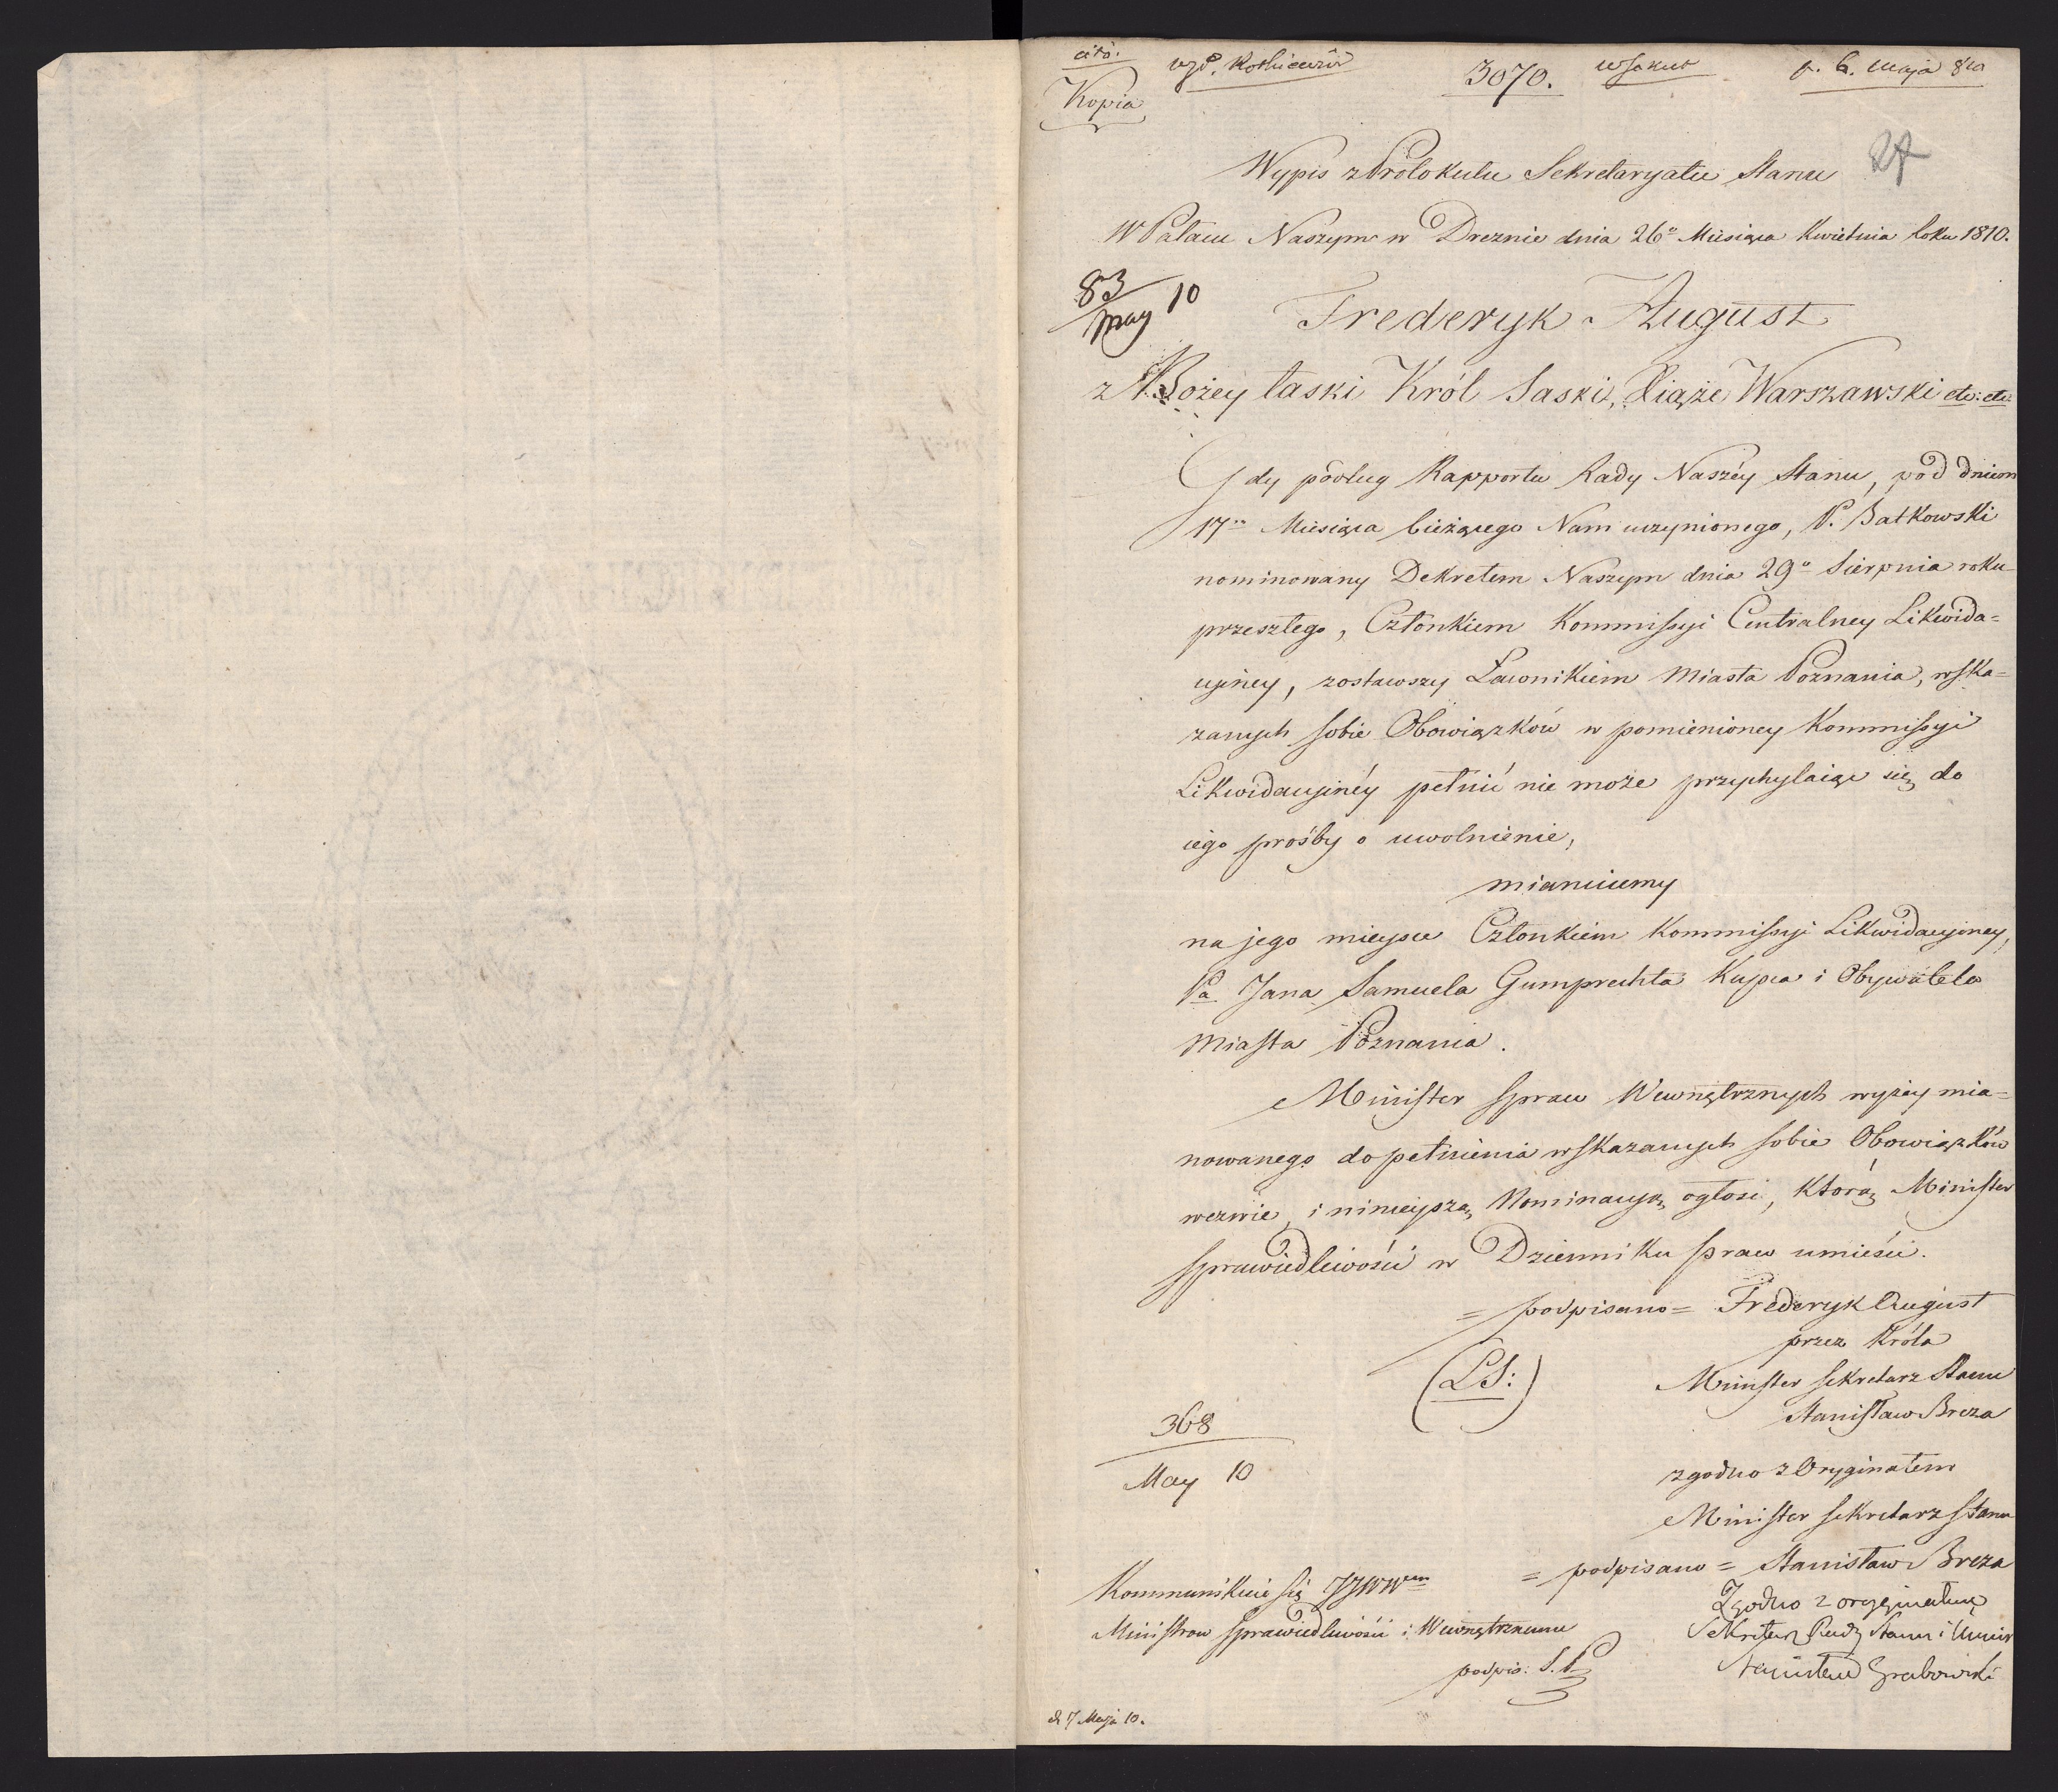 cito.
Kopia
3070.
p. 6. Maja 810
27
Wypis z Protokułu Sekretaryatu Stanu
W Pałacu Naszym w Dreznie dnia 26º Miesiąca Kwietnia Roku 1810.
83
May 10
Frederyk August
z Bożey łaski Król Saski, Xiąże Warszawski etc: etc:
Gdy podług Rapportu Rady Naszéy Stanu, pod dniem
17º Miesiąca bieżącego Nam uczynionego, P. Batkowski
nominowany Dekretem Naszym dnia 29º Sierpnia roku
przeszłego, Członkiem Kommissyi Centralney Likwida=
cyiney, zostawszy Ławnikiem Miasta Poznania, wska=
zanych sobie Obowiązków w pomienioney Kommissyi
Likwidacyinéy pełnić nie może przychylaiąc się do
iego prośby o uwolnienie,
mianuiemy
na jego mieysce Członkiem Kommissyi Likwidacyiney,
Pa Jana Samuela Gumprechta Kupca i Obywatela
Miasta Poznania.
Minister Spraw Wewnętrznych wyżey mia=
nowanego do pełnienia wskazanych sobie Obowiązków
wezwie, i ninieyszą Nominacyą ogłosi, którą Minister
Sprawiedliwości w Dzienniku praw umieści.
= podpisano = Frederyk August
przez Króla
(LS:)
Minister Sekretarz Stanu
Stanisław Breza
368
May 10
zgodno z Oryginałem
Minister Sekretarz Stanu
= podpisano = Stanisław Breza
Kommunikuie się JJWWm
Ministrom Sprawiedliwości i Wewnętrznemu
podpis: S. P.
Zgodno z oryginałem
Sekretarz Rady Stanu i Minis
Stanisław Grabowski
d 7 Maja 10.